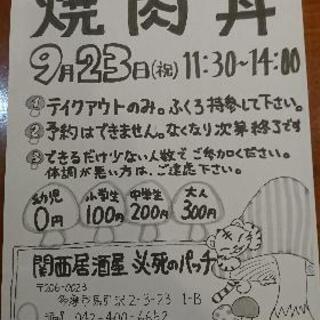 焼肉丼
9月23日(祝) 11:30~14:00
1 テイクアウトのみ。ふくろ持参して下さい。
2 予約はできません。なくなり次第終了です
3 できるだけ少ない人数でご参加ください。
体調が悪い方は、ご遠慮下さい。
幼児 0円
小学生 100円
中学生 200円
大人 300円
関西居酒屋 必死のパッチ
〒206-0023
多摩市馬引沢2-3-23 1-B
042-400-6652